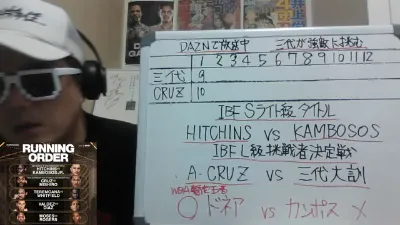 DAZNで放送中 三代が強敵に挑む
1 2 3 4 5 6 7 8 9 10 11 12
三代 9
CRUZ 10
IBF Sライト級タイトル
HITCHINS VS KAMBOSOS
IBF L級挑戦者決定戦
A・CRUZ VS 三代大訓
WBA暫定王者
○ドネア VS カンポス ×
RUNNING
ORDER
HITCHINS
KAMBOSOS JR.
CRUZ
MISHIRO
TEREMOANA
WHITFIELD
VALDEZ
DIAZ
MOSES
ROGERS